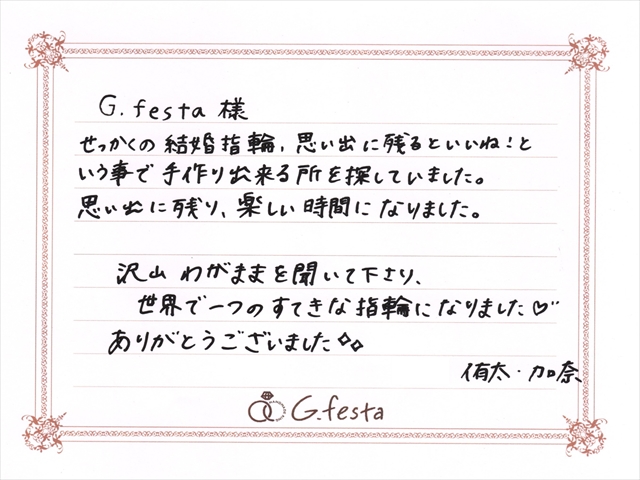 G.festa 様
せっかくの 結婚指輪、思い出に残るといいね！と
いう事で 手作り出来る所を探していました。
思い出に残り、楽しい時間になりました。
沢山 わがままを聞いて下さり、
世界で一つのすてきな指輪になりました♡
ありがとうございました
侑太・加奈
G.festa